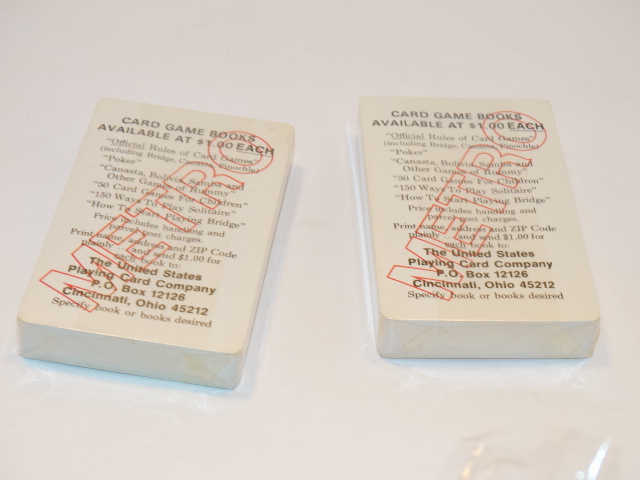 CARD GAME BOOKS
AVAILABLE AT $1.00 EACH
"Official Rules of Card Games"
(including Bridge, Canasta, Pinochle)
"Poker"
"Canasta, Bolivia, Samba and
Other Games of Rummy"
"50 Card Games For Children"
"150 Ways To Play Solitaire"
"How To Start Playing Bridge"
Price includes handling and
parcel post charges.
Print name, address and ZIP Code
plainly . . and send $1.00 for
each book to:
The United States
Playing Card Company
P.O. Box 12126
Cincinnati, Ohio 45212
Specify book or books desired
CARD GAME BOOKS
AVAILABLE AT $1.00 EACH
"Official Rules of Card Games"
(including Bridge, Canasta, Pinochle)
"Poker"
"Canasta, Bolivia, Samba and
Other Games of Rummy"
"50 Card Games For Children"
"150 Ways To Play Solitaire"
"How To Start Playing Bridge"
Price includes handling and
parcel post charges.
Print name, address and ZIP Code
plainly . . and send $1.00 for
each book to:
The United States
Playing Card Company
P.O. Box 12126
Cincinnati, Ohio 45212
Specify book or books desired